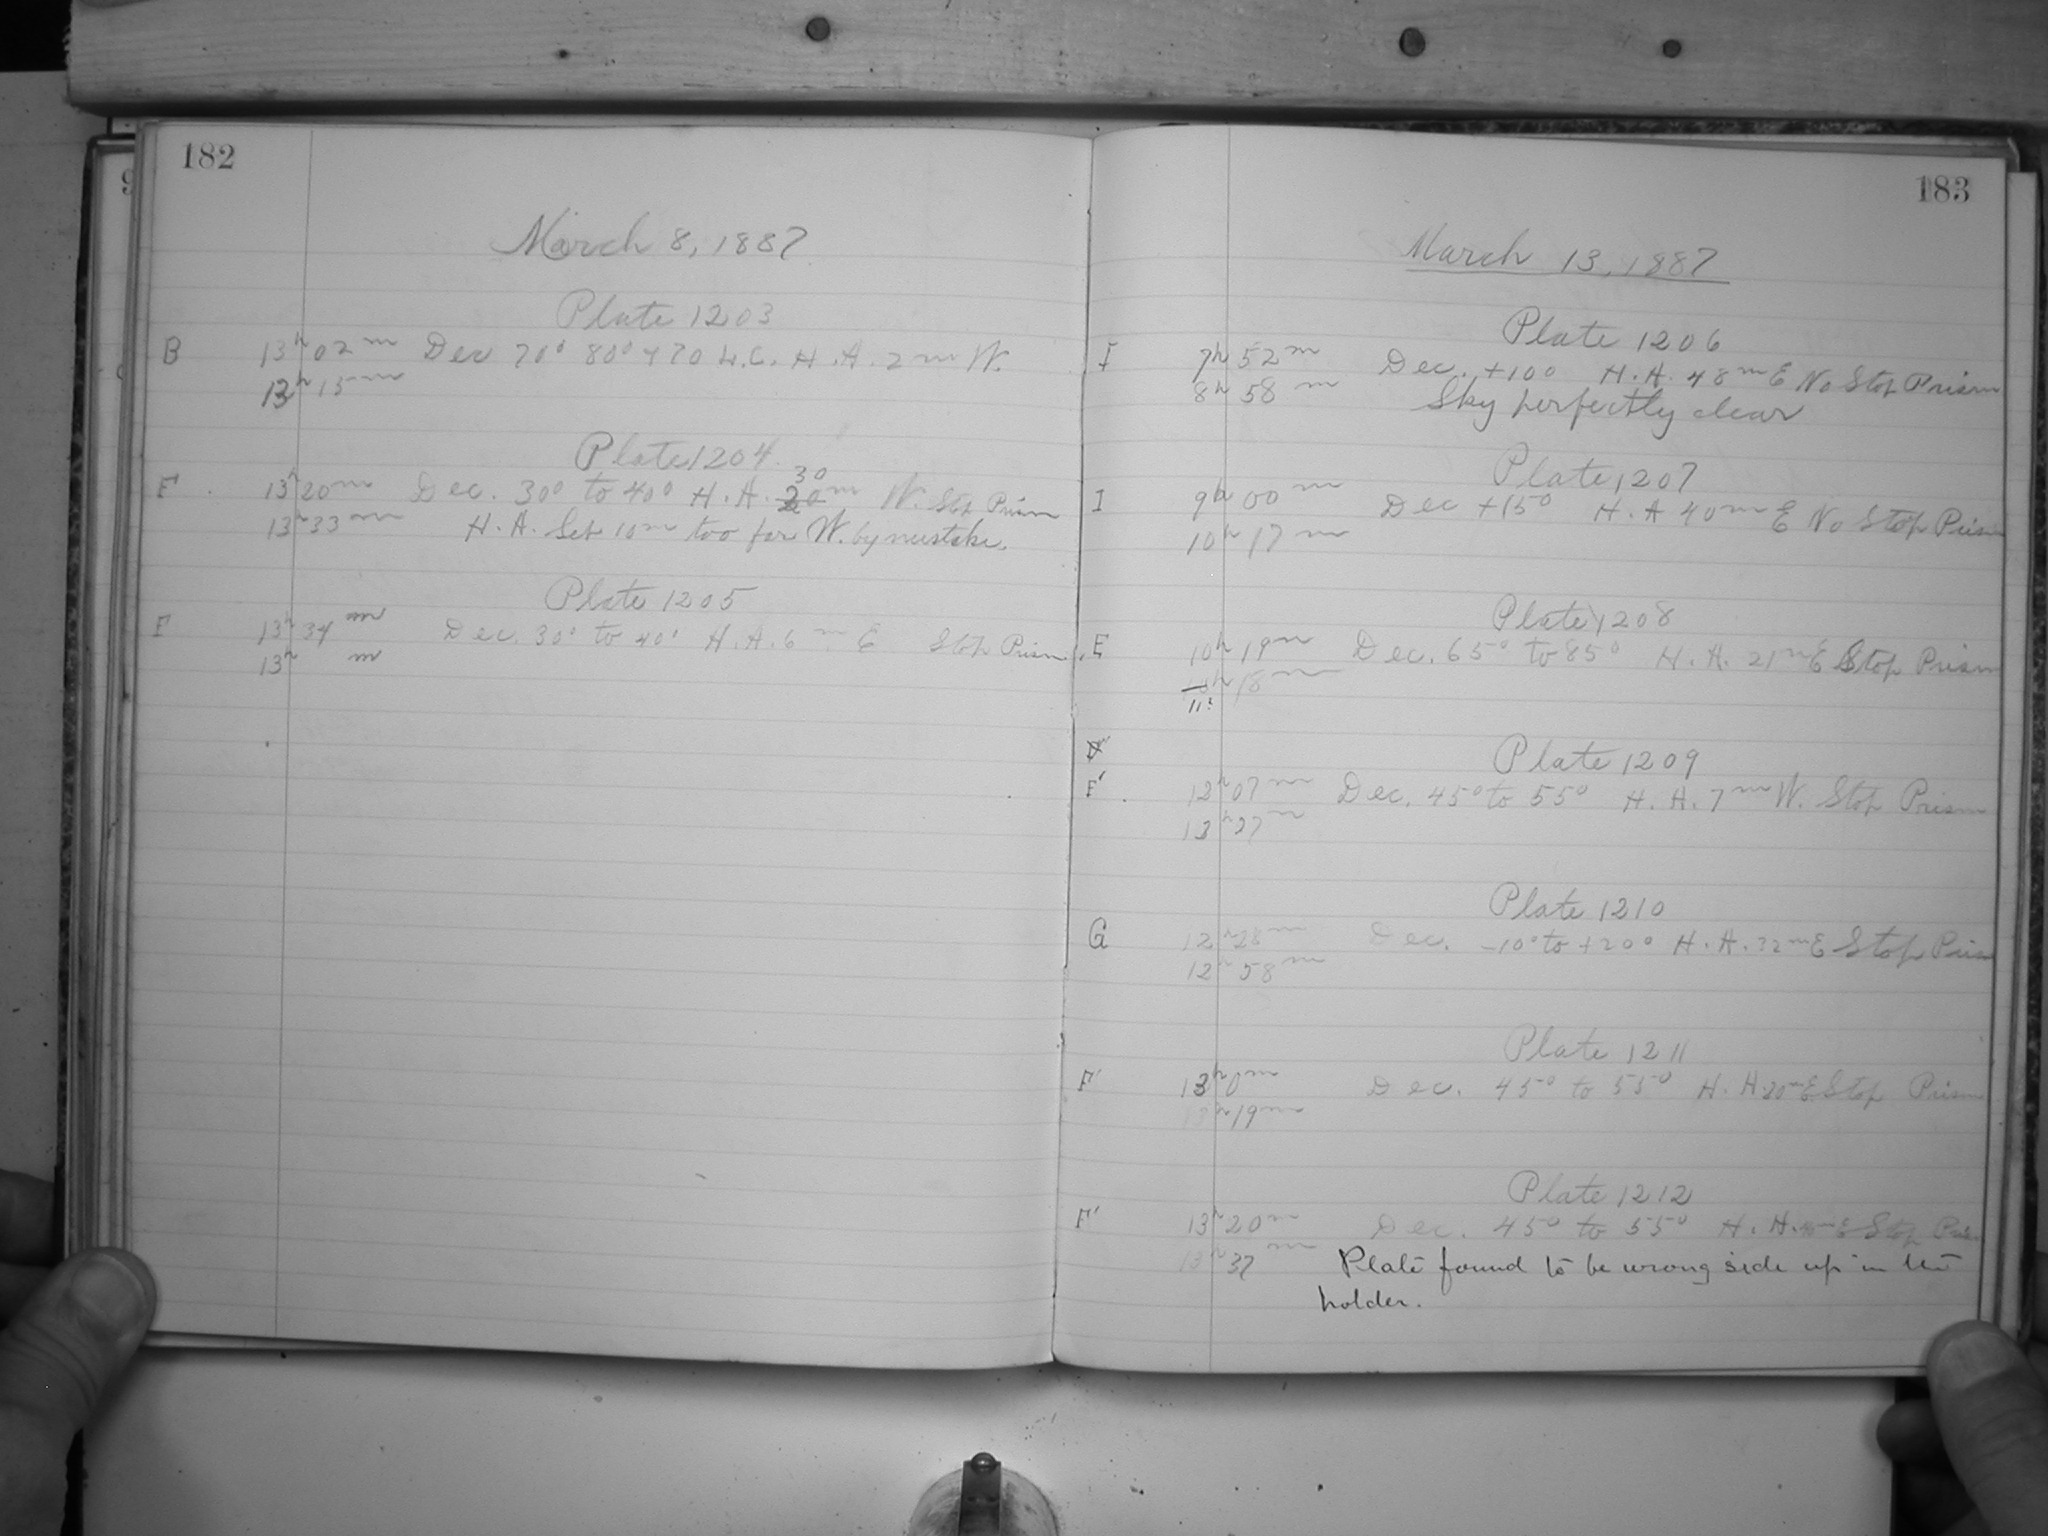 182
March 8, 1887
Plate 1203
B 13h 02m Dec 70° 80° + 70 L.C. H.A. 2m W.
13h 15m
Plate 1204
30
F 13h 20m Dec. 30° to 40° H.A. 20m W. Stop Prism
13h 33m H.A. Set 10m too far W. by mistake.
Plate 1205
F 13h 34m Dec. 30° to 40° H.A. 6m E Stop Prism
13h m
183
March 13, 1887
Plate 1206
I 7h 52m Dec. +10° H.A. 48m E No Stop Prism
8h 58m Sky perfectly clear
Plate 1207
I 9h 00m Dec +15° H.A 40m E No Stop Prism
10h 17m
Plate 1208
E 10h 19m Dec. 65° to 85° H.A. 21m E Stop Prism
h 18m
11?
Plate 1209
F' 12h 07m Dec. 45° to 55° H.A. 7m W. Stop Prism
13h 27m
Plate 1210
G 12h 28m Dec. -10° to +20° H.A. m E Stop Prism
12h 58m
Plate 1211
F' 13h 0m Dec. 45° to 55° H.A. 20m E Stop Prism
h 19m
Plate 1212
F' 13h 20m Dec. 45° to 55° H.A. E Stop Prism
13h 37m Plate found to be wrong side up in the
holder.